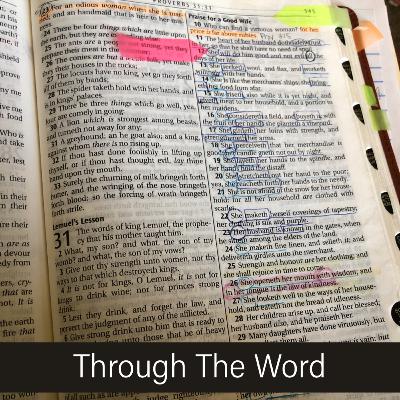 PROVERBS 31:31
For an odious woman when she is mar-
and an handmaid that is heir to her mis-
24 There be four things which are little upon
earth, but they are
25 The ants are a people not strong, yet they
prepare their meat in the
26 The conies are but a feeble folk, yet make
their houses in the rocks;
27 The locusts have no king, yet go they forth
all of them by bands;
28 The spider taketh hold with her hands, and
is in kings' palaces.
29 There be three things which go well, yea,
four are comely in going:
30 A lion which is strongest among beasts,
and turneth not away for any;
31 A greyhound; an he goat also; and a king,
against whom there is no rising up.
32 If thou hast done foolishly in lifting up
thyself, or if thou hast thought evil, lay thine
hand upon thy mouth.
33 Surely the churning of milk bringeth forth
butter, and the wringing of the nose bringeth
forth blood: so the forcing of wrath bringeth
forth strife.
Lemuel's Lesson
31 The words of king Lemuel, the prophe-
cy that his mother taught him.
2 What, my son? and what, the son of my
womb? and what, the son of my vows?
3 Give not thy strength unto women, nor thy
ways to that which destroyeth kings.
4 It is not for kings, O Lemuel, it is not for
kings to drink wine; nor for princes strong
drink:
5 Lest they drink, and forget the law, and
pervert the judgment of any of the afflicted.
6 Give strong drink unto him that is ready to
Praise for a Good Wife
10 Who can find a virtuous woman? for her
price is far above rubies.
11 The heart of her husband doth safely trust
in her, so that he shall have no need of spoil.
12 She will do him good and not evil
days of her life.
13 She seeketh wool, and flax, and worketh
willingly with her hands.
14 She is like the merchants' ships; she bringeth
her food from afar.
15 She riseth also while it is yet night, and
giveth meat to her household, and a portion to
her maidens.
16 She considereth a field, and buyeth it: with
the fruit of her hands she planteth a vineyard.
17 She girdeth her loins with strength, and
strengtheneth her arms.
18 She perceiveth that her merchandise is
good: her candle goeth not out by night.
19 She layeth her hands to the spindle, and
her hands hold the distaff.
20 She stretcheth out her hand to the poor;
yea, she reacheth forth her hands to the needy.
21 She is not afraid of the snow for her house-
hold: for all her household are clothed with
scarlet.
22 She maketh herself coverings of tapestry;
her clothing is silk and purple.
23 Her husband is known in the gates, when
he sitteth among the elders of the land.
24 She maketh fine linen, and selleth it; and
delivereth girdles unto the merchant.
25 Strength and honour are her clothing; and
she shall rejoice in time to come.
26 She openeth her mouth with wisdom; and
in her tongue is the law of kindness.
27 She looketh well to the ways of her house-
hold, and eateth not the bread of idleness.
28 Her children arise up, and call her blessed;
her husband also, and he praiseth her.
29 Many daughters have done virtuously, but
Through The Word